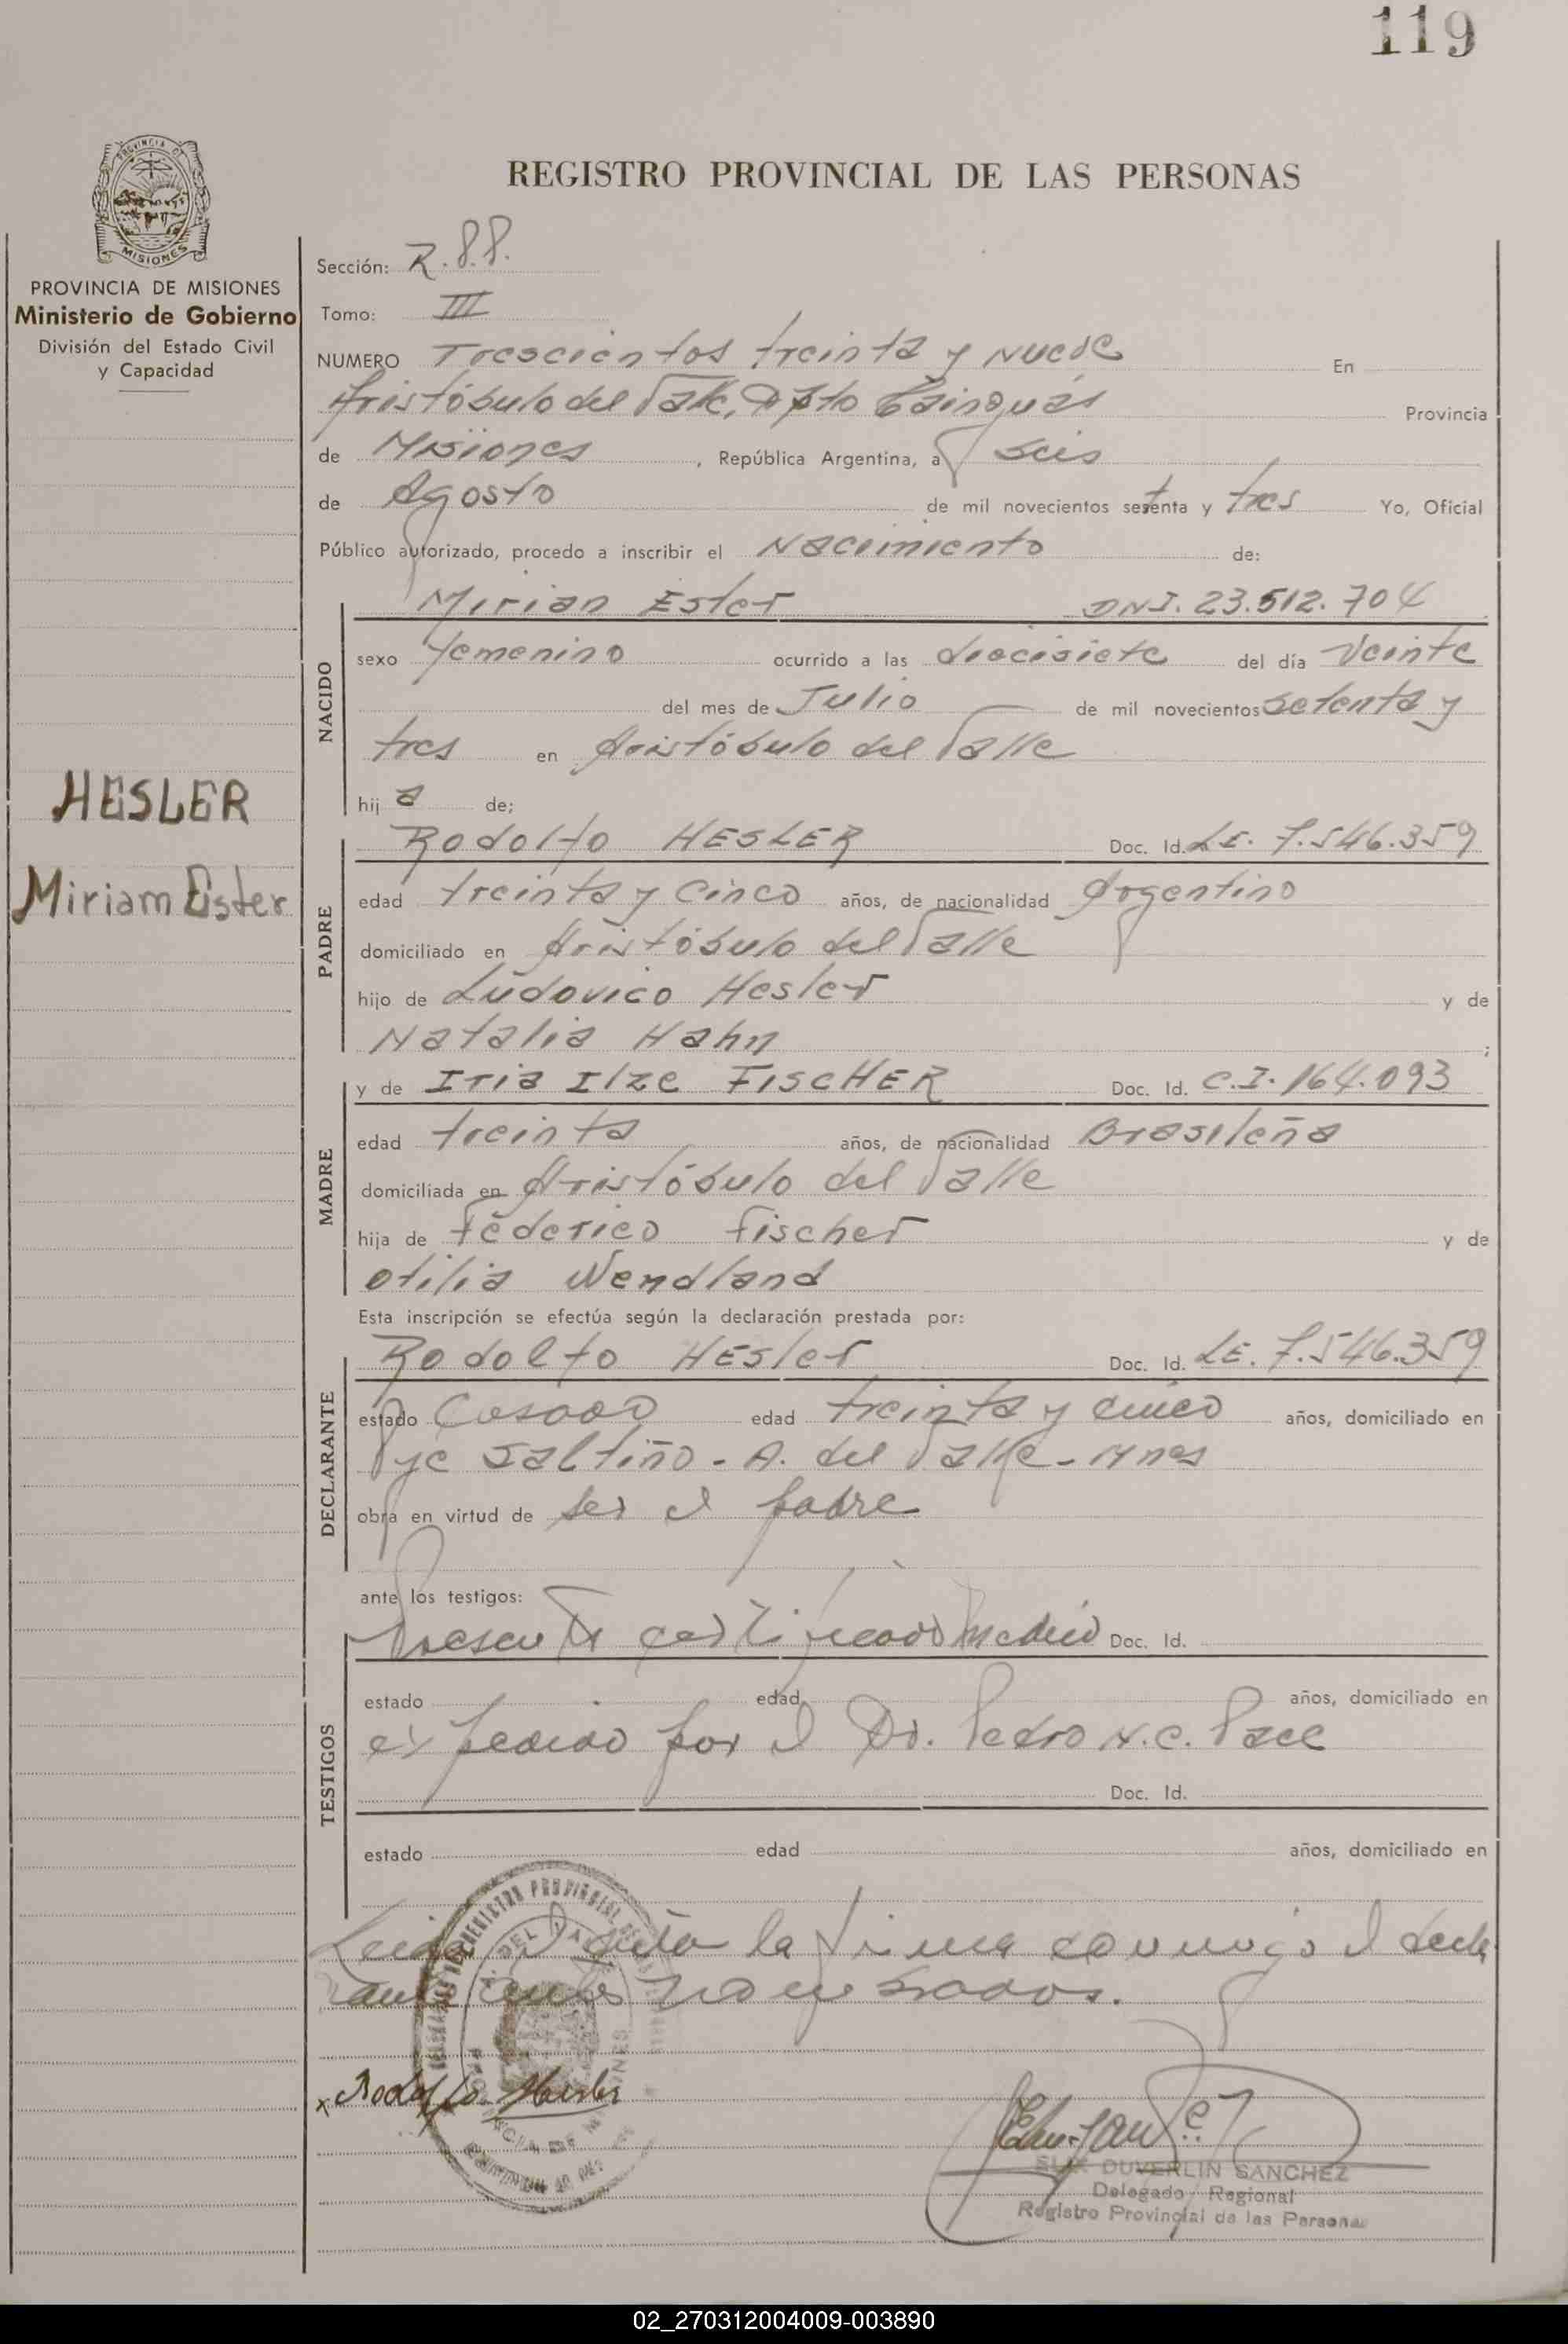 119
PROVINCIA DE
MISIONES
PROVINCIA DE MISIONES
Ministerio de Gobierno
División del Estado Civil
y Capacidad
HESLER
Miriam Ester
REGISTRO PROVINCIAL DE LAS PERSONAS
Sección: R.88.
Tomo: III
NUMERO Trescientos treinta y Nueve En
Aristóbulo del Valle, Dpto Cainguás Provincia
de Misiones, República Argentina, a seis
de Agosto de mil novecientos setenta y tres Yo, Oficial
Público autorizado, procedo a inscribir el Nacimiento de:
NACIDO
Mirian Ester DNI. 23.512.704
sexo femenino ocurrido a las diecisiete del día Veinte
del mes de Julio de mil novecientos setenta y
tres en Aristóbulo del Valle
hija de;
PADRE
Rodolfo HESLER Doc. Id. LE. 7.546.359
edad treinta y Cinco años, de nacionalidad Argentino
domiciliado en Aristóbulo del Valle
hijo de Ludovico Hesler y de
Natalia Hahn ;
MADRE
y de Iria Ilze FISCHER Doc. Id. C.I. 164.093
edad treinta años, de nacionalidad Brasileña
domiciliada en Aristóbulo del Valle
hija de Federico Fischer y de
Otilia Wendland
Esta inscripción se efectúa según la declaración prestada por:
DECLARANTE
Rodolfo HEsler Doc. Id. LE. 7.546.359
estado Casado edad treinta y cinco años, domiciliado en
Pje Saltiño - A. del Valle - Mnes
obra en virtud de ser el padre
ante los testigos:
TESTIGOS
Presenta certificado medico Doc. Id.
estado edad años, domiciliado en
expedido por el Dr. Pedro N.C. Pace
Doc. Id.
estado edad años, domiciliado en
Leida el acta la firma conmigo el decla
rante
x Rodolfo Hesler
DUVERLIN SANCHEZ
Delegado Regional
Registro Provincial de las Personas
02_270312004009-003890